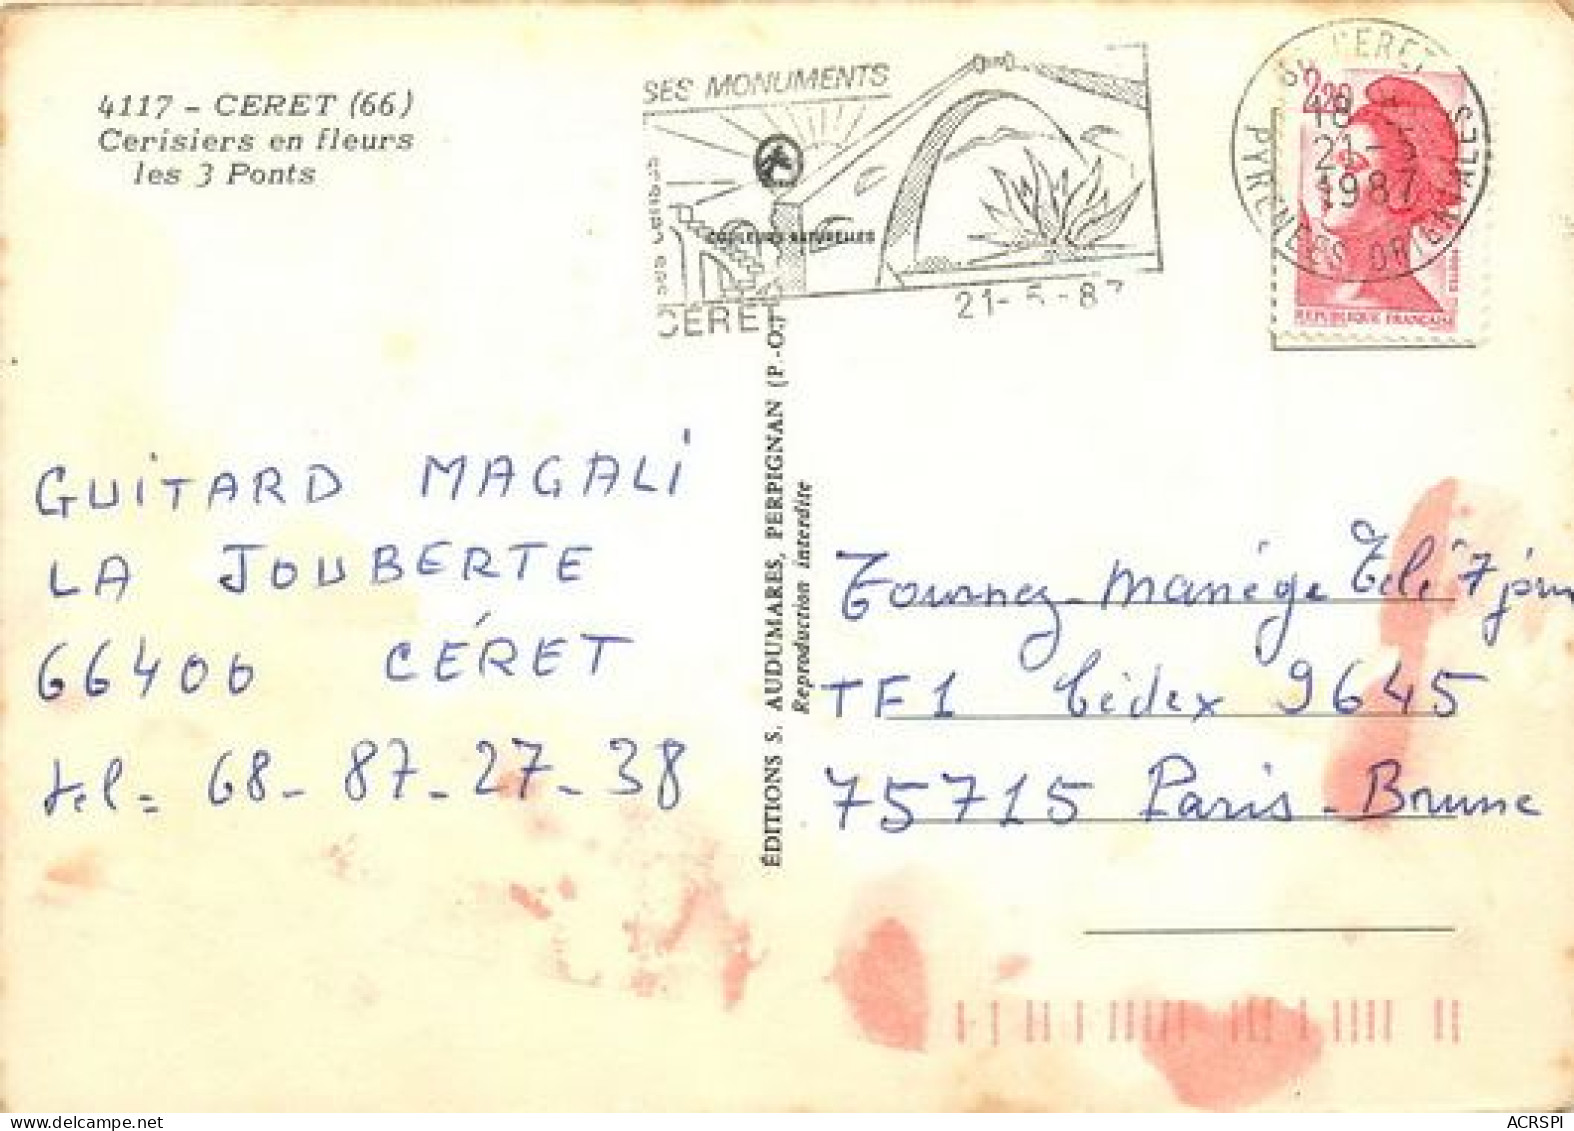 4117 - CERET (66)
Cerisiers en fleurs
les 3 Ponts
SES MONUMENTS
COULEURS NATURELLES
CERET
21-5-87
66 CERET
18 H
21-5
1987
PYRENEES ORIENTALES
2,20
REPUBLIQUE FRANÇAISE
GUITARD MAGALI
LA JOUBERTE
66400 CÉRET
tel = 68-87-27-38
ÉDITIONS S. AUDUMARES, PERPIGNAN (P.-O.)
Reproduction interdite
Tournez-Manège Télé 7 jours
TF1 Cédex 9645
75715 Paris-Brune
ACRSPI